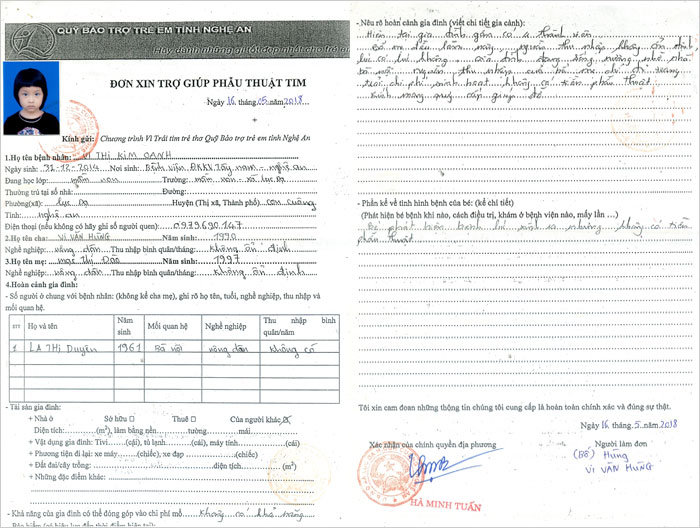 QUỸ BẢO TRỢ TRẺ EM TỈNH NGHỆ AN
Hãy dành những gì tốt đẹp nhất cho trẻ em
ĐƠN XIN TRỢ GIÚP PHẪU THUẬT TIM
Ngày 16 tháng 05 năm 2018
Kính gửi: Chương trình Vì Trái tim trẻ thơ Quỹ Bảo trợ trẻ em tỉnh Nghệ An
1.Họ tên bệnh nhân: VI THỊ KIM OANH
Ngày sinh: 31-12-2014 Nơi sinh: Bệnh viện ĐKKV Tây nam - nghệ an
Đang học lớp: mầm non Trường: mầm non - xã lục dạ
Thường trú tại số nhà: Đường:
Phường(xã): lục dạ Huyện (Thị xã, Thành phố) con cuông
Tỉnh: nghệ an
Điện thoại (nếu không có hãy ghi số người quen): 0979.690.147
2.Họ tên cha: VI VĂN HÙNG Năm sinh: 1990
Nghề nghiệp: nông dân Thu nhập bình quân/tháng: không ổn định
3.Họ tên mẹ: mạc Thị Đào Năm sinh: 1997
Nghề nghiệp: nông dân Thu nhập bình quân/tháng: không ổn định
4.Hoàn cảnh gia đình:
- Số người ở chung với bệnh nhân: (không kể cha mẹ), ghi rõ họ tên, tuổi, nghề nghiệp, thu nhập và
mối quan hệ.
STT Họ và tên Năm sinh Mối quan hệ Nghề nghiệp Thu nhập bình quân/năm
1 LA THỊ Duyên 1961 Bà nội nông dân không có
- Tài sản gia đình:
+ Nhà ở Sở hữu □ Thuê □ Của người khác ☒
Diện tích: (m²), làm bằng nền tường mái
+ Vật dụng gia đình: Tivi (cái), tủ lạnh (cái), máy tính (cái)
+ Phương tiện đi lại: xe máy (chiếc), xe đạp (chiếc)
+ Đất đai/cây trồng: diện tích (m²)
+ Những đặc điểm khác:
- Khả năng của gia đình có thể đóng góp vào chi phí mổ không có khả năng
- Nêu rõ hoàn cảnh gia đình (viết chi tiết gia cảnh):
Hiện tại gia đình gồm có 4 thành viên
Bố mẹ đều làm nguồn thu nhập không ổn định
lúc có lúc không
nguồn thu nhập của bố mẹ chỉ đủ trang
trải chi phí sinh hoạt không có tiền phẫu thuật
Kính mong quý cấp giúp đỡ.
- Phần kể về tình hình bệnh của bé: (kể chi tiết)
(Phát hiện bé bệnh khi nào, cách điều trị, khám ở bệnh viện nào, mấy lần ...)
Bé phát hiện bệnh lúc nhưng không có tiền
phẫu thuật
Tôi xin cam đoan những thông tin chúng tôi cung cấp là hoàn toàn chính xác và đúng sự thật.
Ngày 16 tháng 5 năm 2018
Xác nhận của chính quyền địa phương Người làm đơn
(Bố) Hùng
VI VĂN HÙNG
HÀ MINH TUẤN